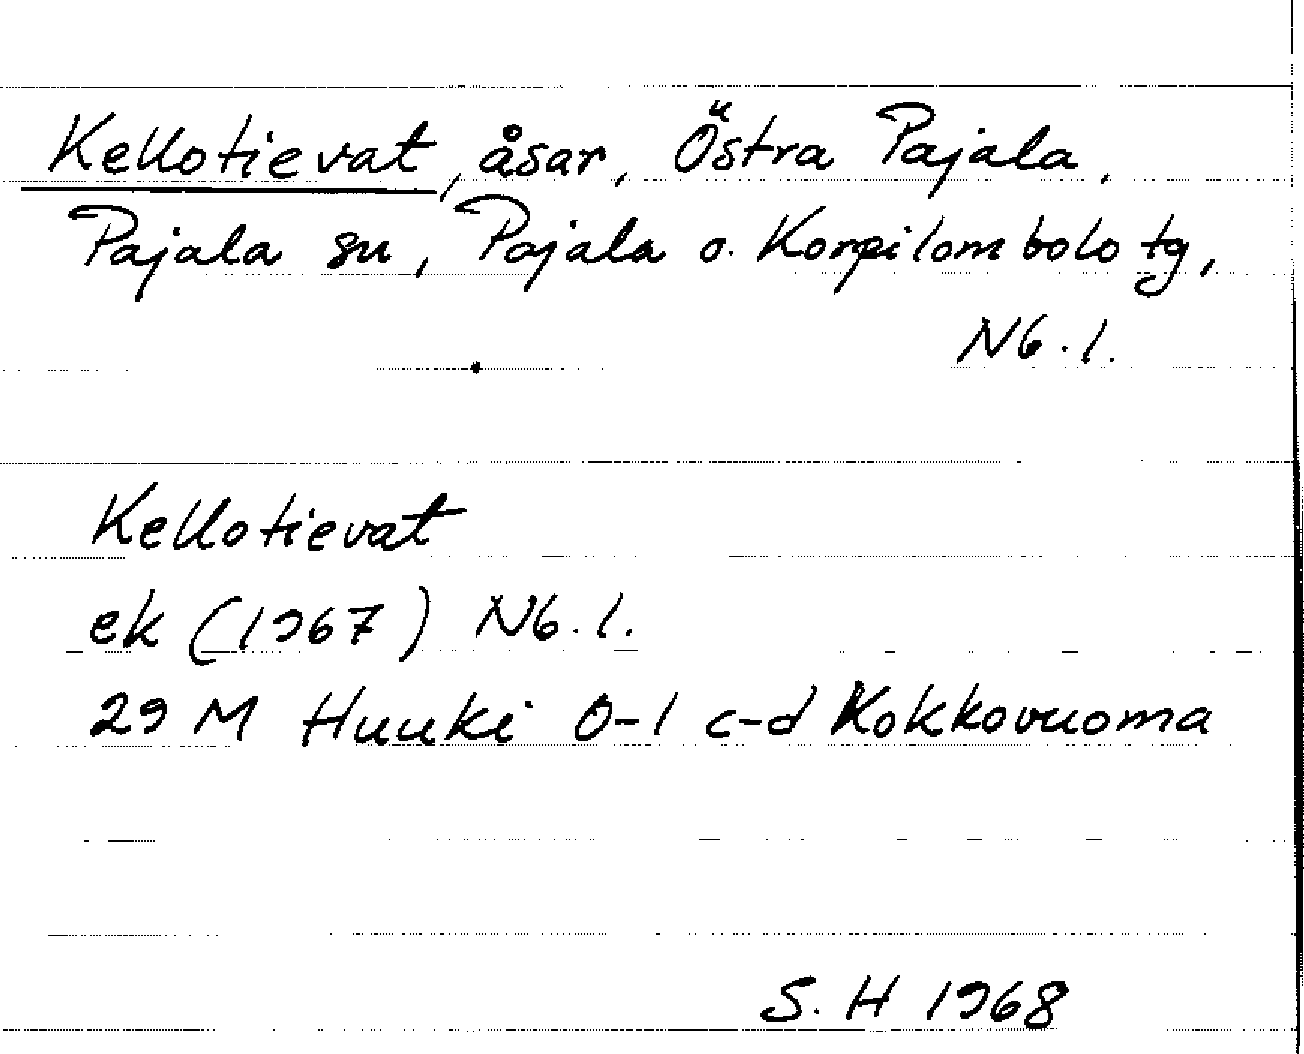 Kellotievat, åsar, Östra Pajala,
Pajala sn, Pajala o. Korpilombolo tg,
Nb. l.
Kellotievat
ek (1967) Nb. l.
29 M Huuki 0-1 c-d Kokkovuoma
S. H 1968